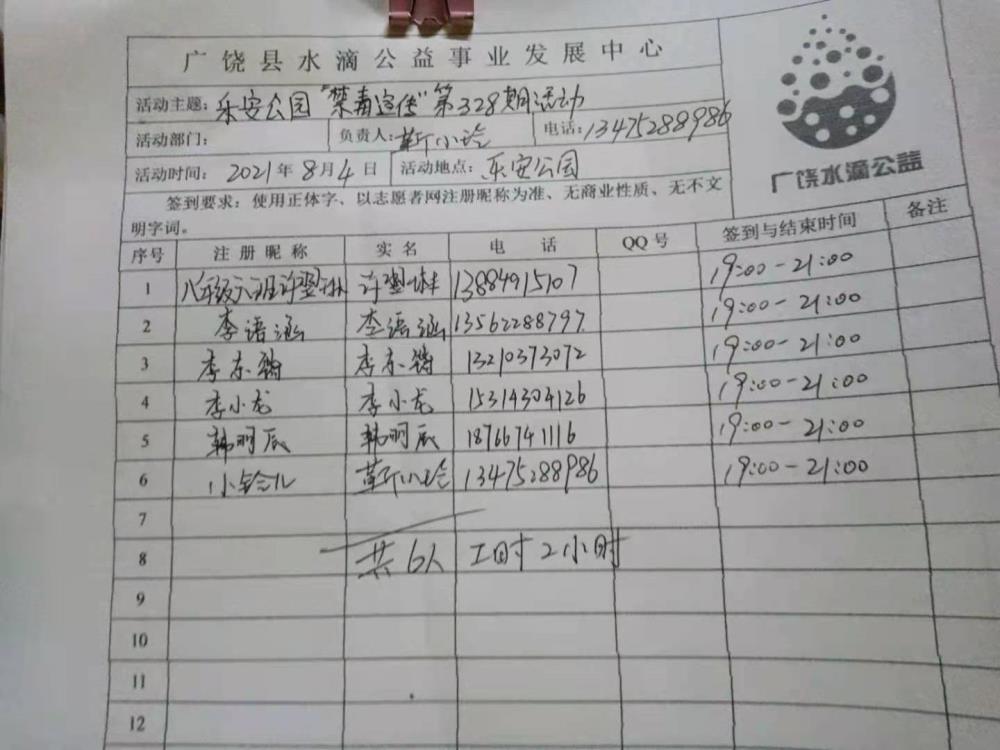 广饶县水滴公益事业发展中心
活动主题：乐安公园“禁毒宣传”第328期活动
活动部门： 负责人：靳小玲 电话：13475288986
活动时间：2021年8月4日 活动地点：乐安公园
广饶水滴公益
签到要求：使用正体字、以志愿者网注册昵称为准、无商业性质、无不文
明字词。
序号 注册昵称 实名 电话 QQ号 签到与结束时间 备注
1 八年级六班许翌琳 许翌琳 13884915107 19:00-21:00
2 李语涵 李语涵 13562288797 19:00-21:00
3 李东 李东 13210373072 19:00-21:00
4 李小龙 李小龙 15314304126 19:00-21:00
5 韩明辰 韩明辰 18766741116 19:00-21:00
6 小铃儿 靳小玲 13475288986 19:00-21:00
7
8 共6人 工时2小时
9
10
11
12